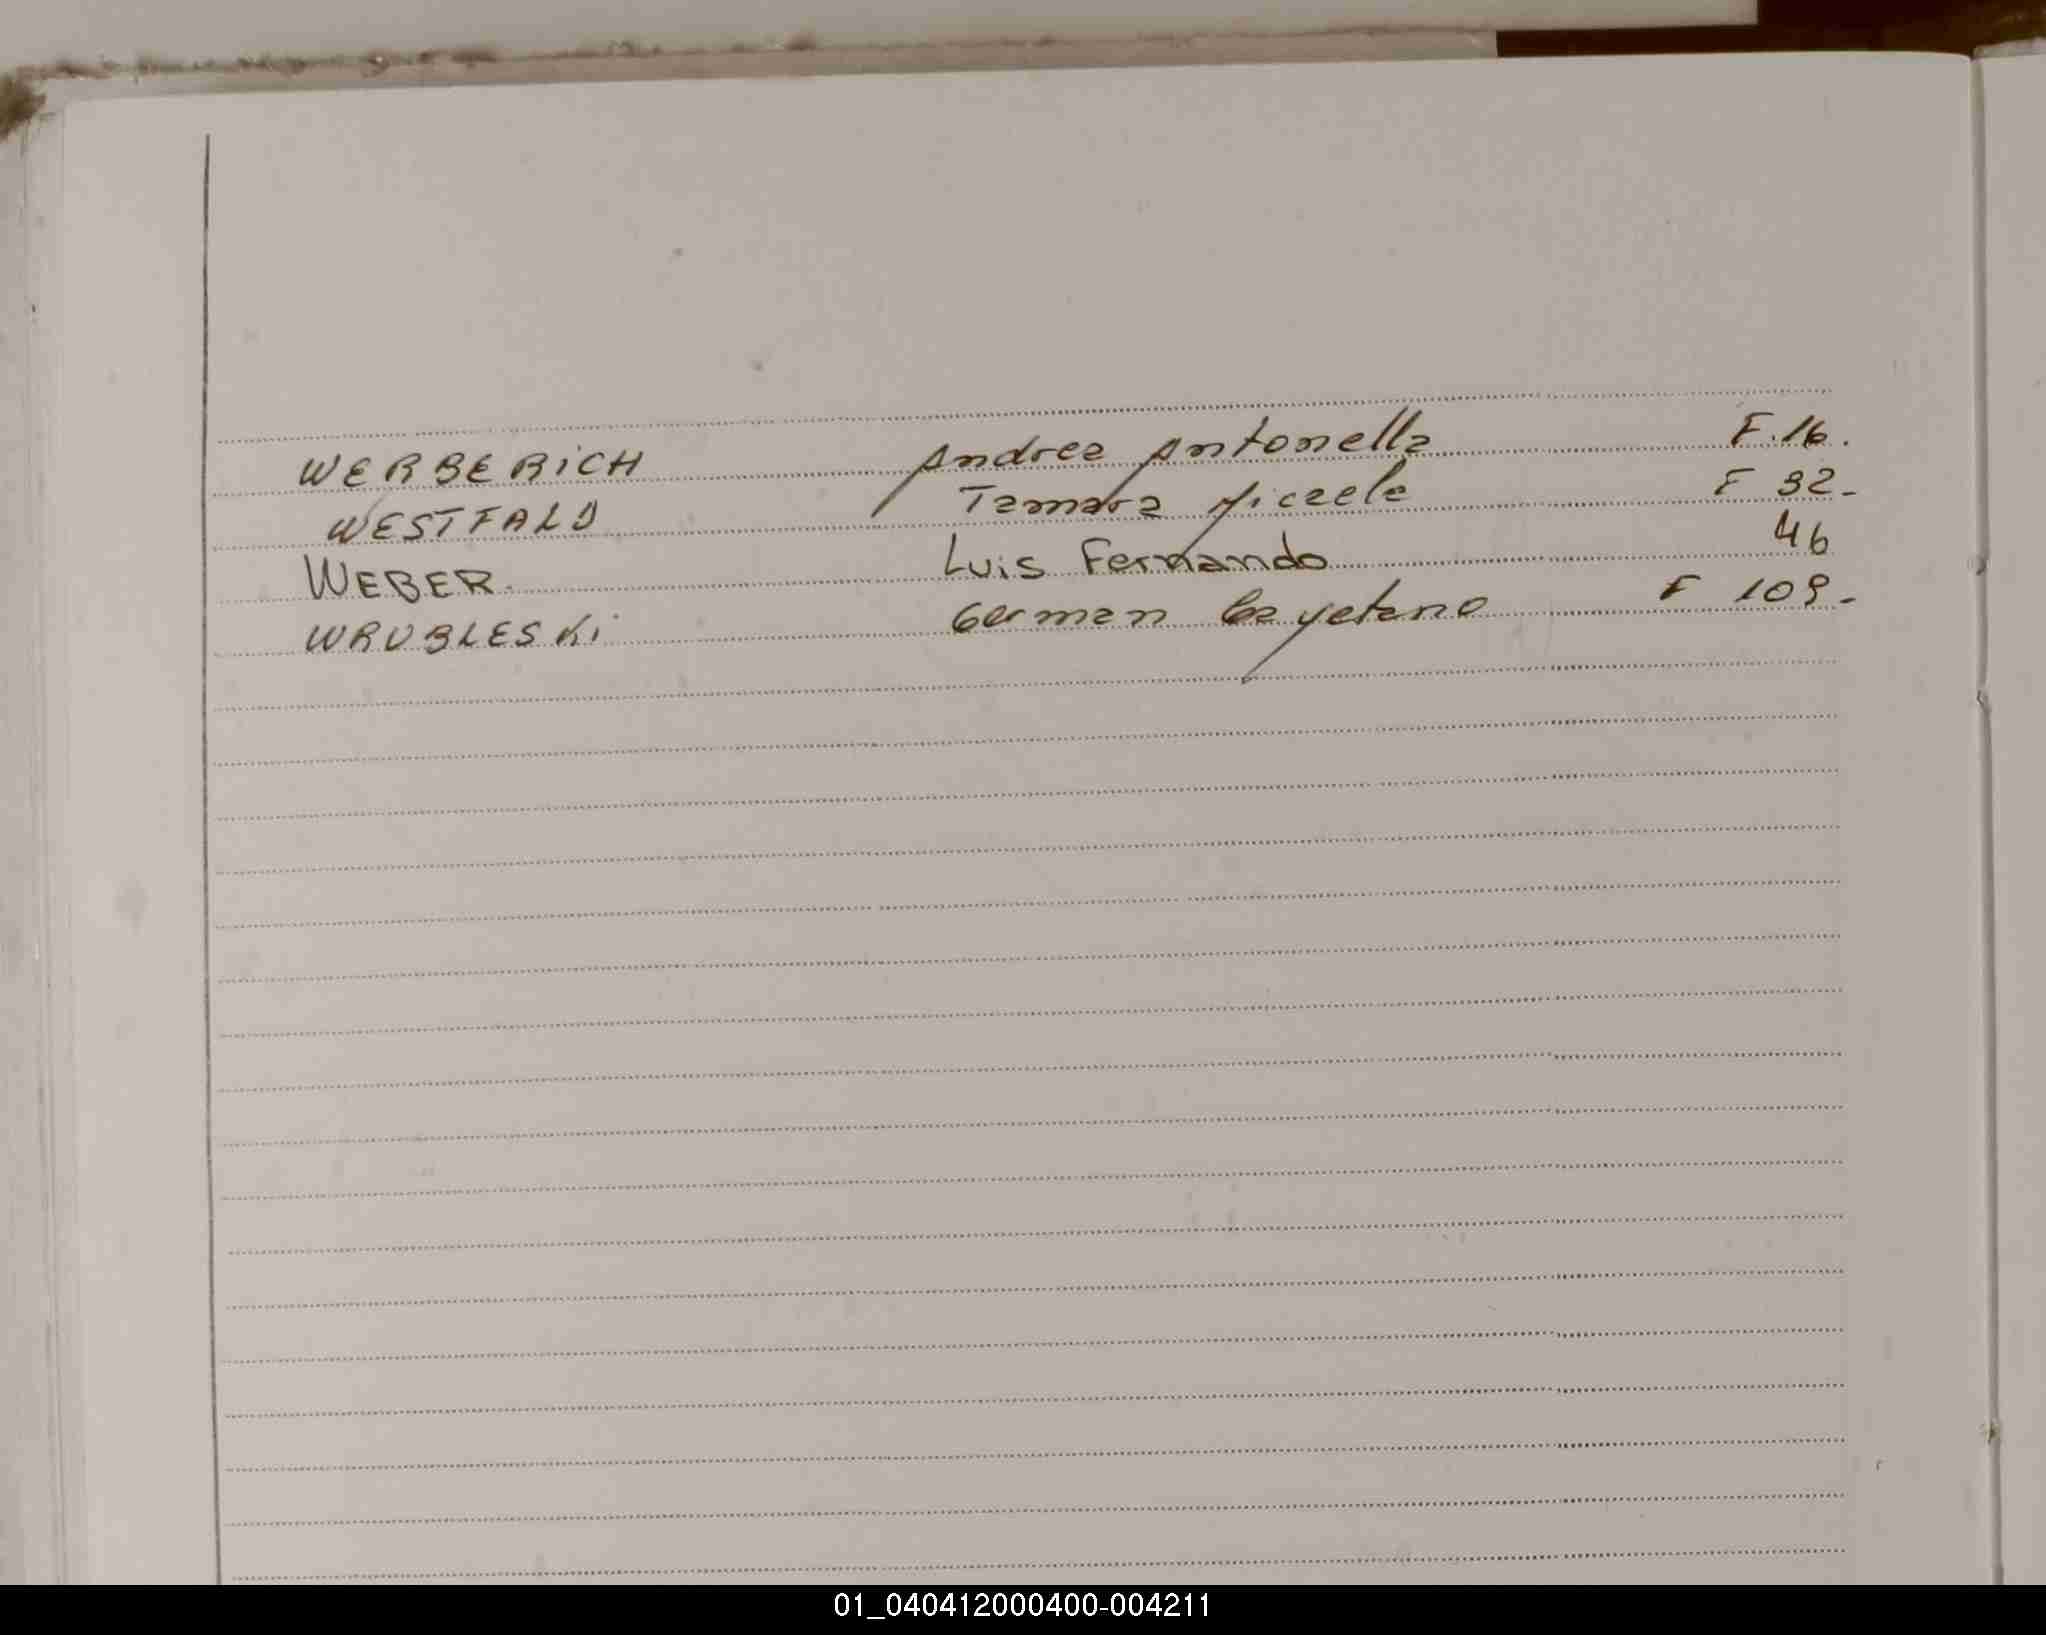 WERBERICH Andrea Antonella F.16.
WESTFALD Tamara Micaela F 32-
WEBER. Luis Fernando 46
WRUBLESKi German Cayetano F 109-
01_040412000400-004211